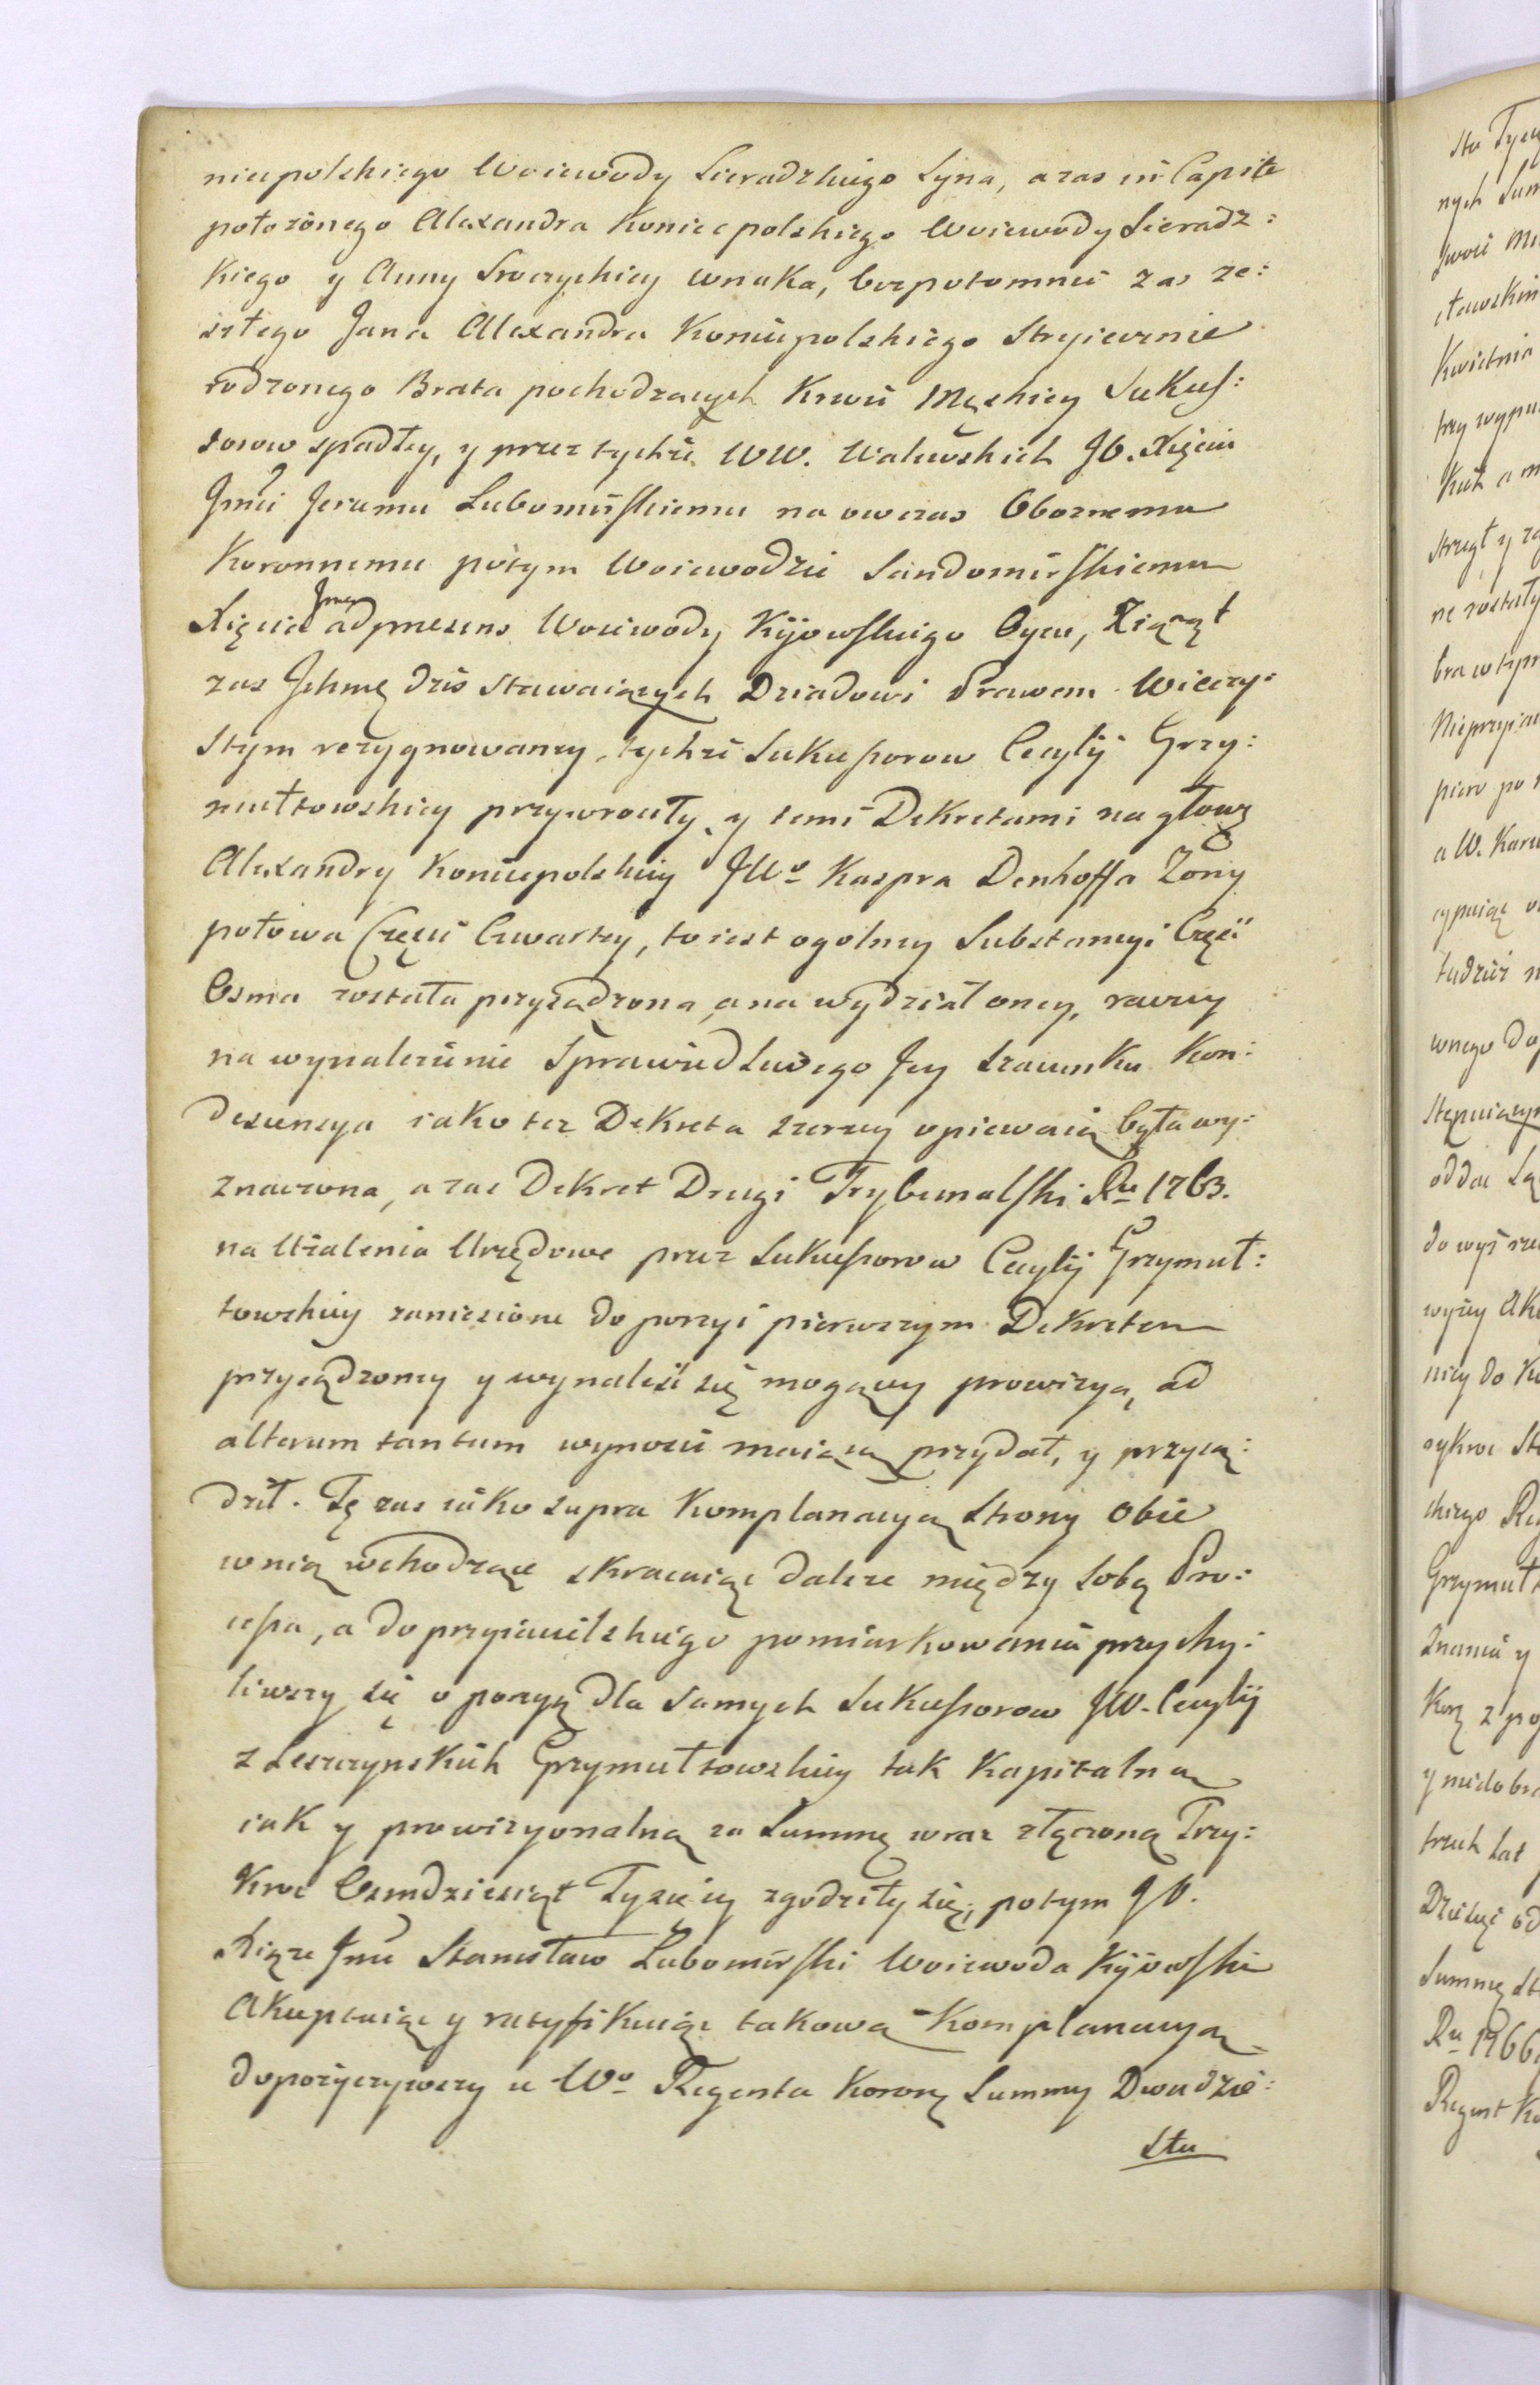 niecpolskiego Woiewody Sieradzkiego Syna, a zas in Capite
położonego Alexandra Koniecpolskiego Woiewody Sieradz:
kiego y Anny Sroczyckiey wnuka, bezpotomnie zas ze:
szłego Jana Alexandra Koniecpolskiego Stryiecznie
rodzonego Brata pochodzących Krwi Męskiey Sukces:
sorow spadłey, y przez tychże WW. Walewskich JO. Xięciu
Jmci Jerzemu Lubomirskiemu na owczas Oboznemu
Koronnemu potym Woiewodzie Sandomirskiemu
Xięcia Jmci ad praesens Woiewody Kijowskiego Oycu, Xiążąt
zas Ichmę dziś stawaiących Dziadowi Prawem Wieczy:
stym rezygnowaney, tychże Sukcessorow Cecylij Grzy:
mułtowskiey przywrociły, y temi Dekretami na głowę
Alexandry Koniecpolskiey JWo Kaspra Denhoffa Zony
połowa Częsci Czwartey, to iest ogolney Substancyi Częsć
Osma została przysądzona, a na wydział oney, raczey
na wynalezienie Sprawiedliwego Jey szacunku Kon:
descensya iako też Dekreta szerzey opiewaią była wy:
znaczona, a zas Dekret Drugi Trybunalski Ru 1763.
na Użalenia Urzędowe przez Sukcessorow Cecylij Grzymuł:
towskiey zaniesione do porcyi pierwszym Dekretem
przysądzoney y wynaleść się mogącey prowizyą, ad
alterum tantum wynosić maiącą przydał, y przysą:
dził. Tę zas iako supra Komplanacyą Strony obie
w nią wchodzące skracaiąc dalsze między sobą Pro:
cessa, a do przyiacielskiego pomiarkowania przychy:
liwszy się o porcyą dla samych Sukcessorow JW. Cecylij
z Leszczynskich Grzymułtowskiey tak Kapitalną
iak y prowizyonalną za Summę wraz złączoną Trzy:
kroć Osmdziesiąt Tysięcy zgodziły się, potym JO.
Xiąże Jmć Stanisław Lubomirski Woiewoda Kijowski
Akceptuiąc y ratyfikuiąc takową Komplanacyą
dopożyczywszy u Wo Regenta Koronę Summy Dwudzie:
stu